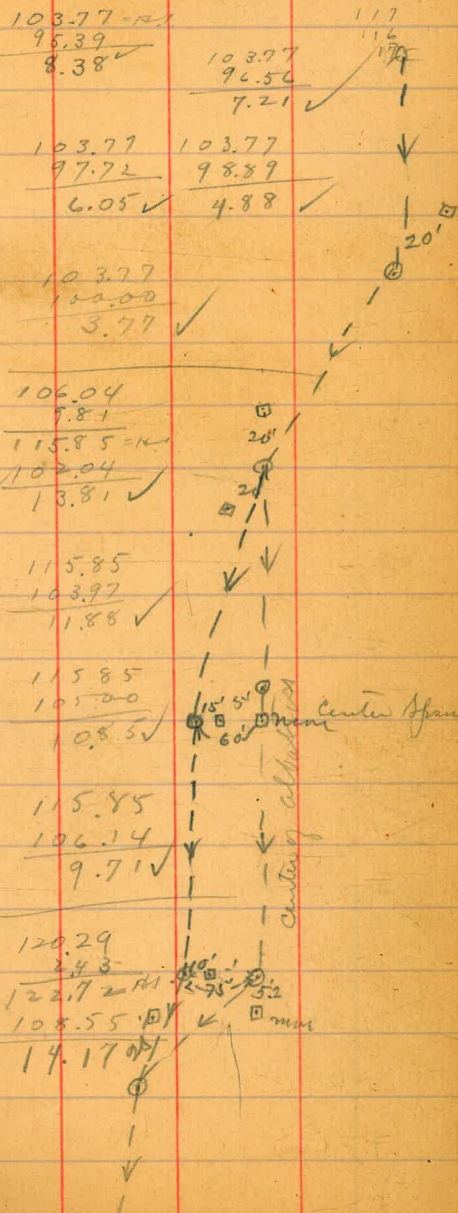 103.77 = H.I
95.39
8.38 ✓
117
116
103.77
96.56
7.21 ✓
103.77
97.72
6.05 ✓
103.77
98.89
4.88 ✓
20'
103.77
100.00
3.77 ✓
106.04
9.81
115.85 = H.I
102.04
13.81 ✓
20'
20
115.85
103.97
11.88 ✓
115.85
105.00
10.85 ✓
15' 5'
60'
mon
Center
Center of
115.85
106.14
9.71 ✓
120.29
2.43
122.72 H.I
108.55
14.17
10'
75'
5.2
mon